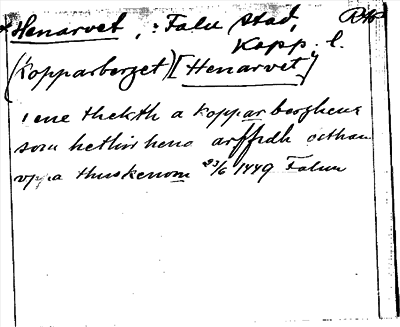 Henarvet, : Falu stad,
Kopp. l.
(Kopparberget) [Henarvet]
i ene thekth a kopparberghens
som hethir heno arffudh octhan
vppa thuskenom 23/6 1449 Falun